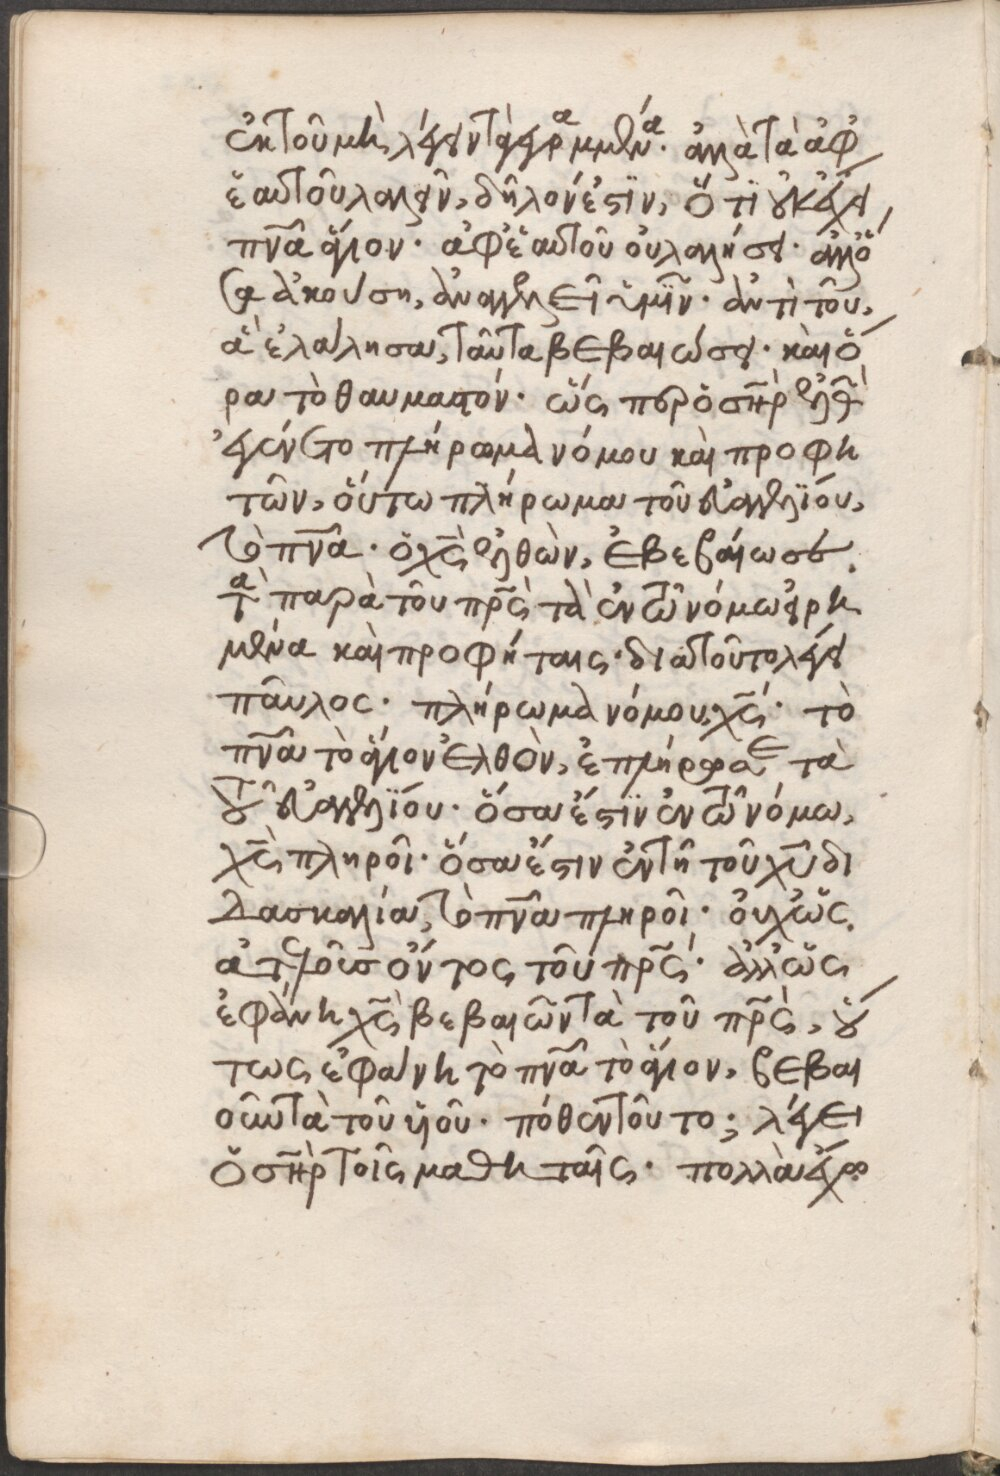 ἐκ τοῦ μὴ λέγειν τὰ γεγραμμένα. ἀλλὰ τὰ ἀφ
ἑαυτοῦ λαλεῖν, δῆλον ἐστϊν, ὅτι οὐκ
πνᾶ ἅγιον. ἀφ ἑαυτοῦ οὐ λαλήσει. ἀλλ ὅ
σα ἀκούση, ἀναγγελεῖ ὑμῖν. ἀντὶ τοῦ,
ἃ ἐλάλησα, ταῦτα βεβαιώσει. καὶ ὅ
ρα τὸ θαυμαστόν. ὥς περ ὁ σηρ
ἐγένετο πλήρωμα νόμου καὶ προφη
τῶν, οὕτω πλήρωμα τοῦ εὐαγγελϊου,
τὸ πνᾶ. ὁ χς ἐλθὼν, ἐβεβαίωσε
τὰ παρὰ τοῦ πρς τὰ ἐν τῶ νόμω εἰρη
μένα καὶ προφήταις. διὰ τοῦτο λέγει
παῦλος. πλήρωμα νόμου χς. τὸ
πνᾶ τὸ ἅγιον ἐλθὸν, ἐπλήρωσε τὰ
τοῦ εὐαγγελϊου. ὅσα ἐστϊν ἐν τῶ νόμω,
χς πληροῖ. ὅσα ἐστιν ἐν τῆ τοῦ χυ δι
δασκαλία, τὸ πνᾶ πληροῖ. οὐχ ὡς
ἀτελοῦς ὄντος τοῦ πρς. ἀλλ ὡς
ἐφάνη χς βεβαιῶν τὰ τοῦ πρς, οὕ
τως ἐφάνη τὸ πνᾶ τὸ ἅγιον, βεβαι
οῦν τὰ τοῦ υἱοῦ. πόθεν τοῦτο; λέγει
ὁ σηρ τοῖς μαθηταῖς. πολλὰ ἔχω